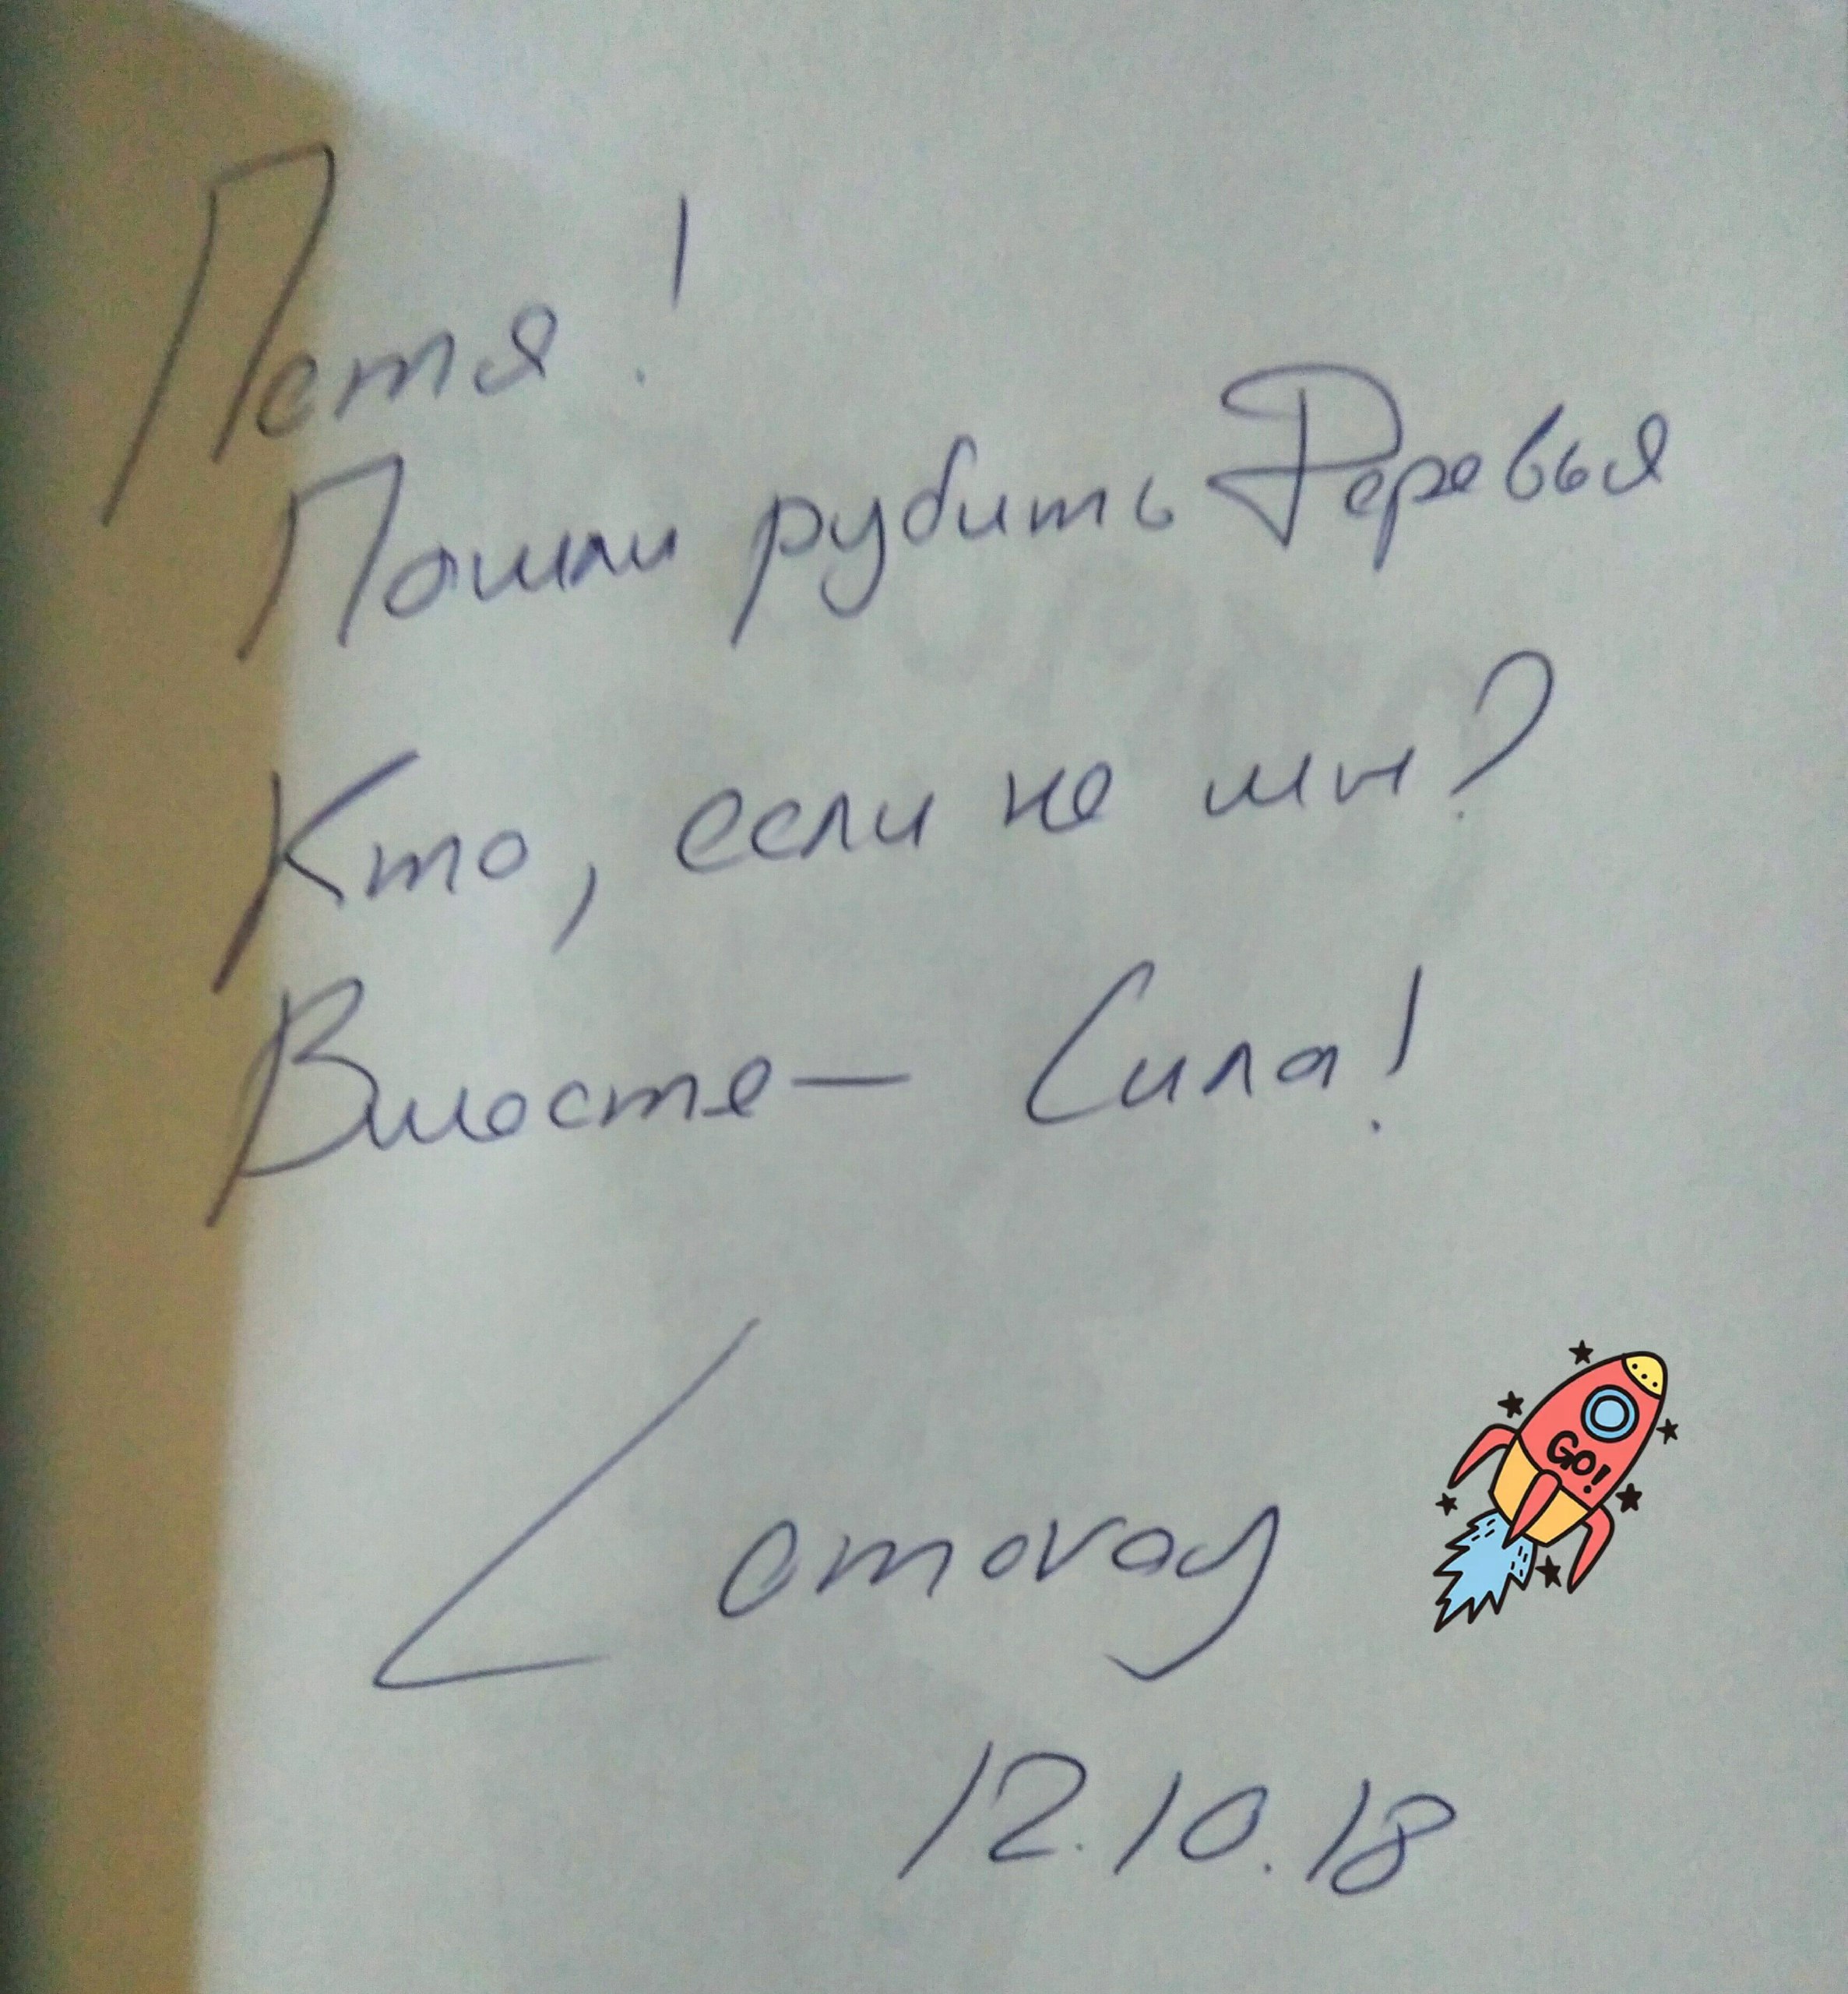 Петя!
Пошли рубить Деревья
Кто, если не мы?
Вместе — Сила!
GO!
12.10.18